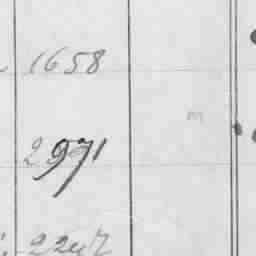 1658
2971
2247